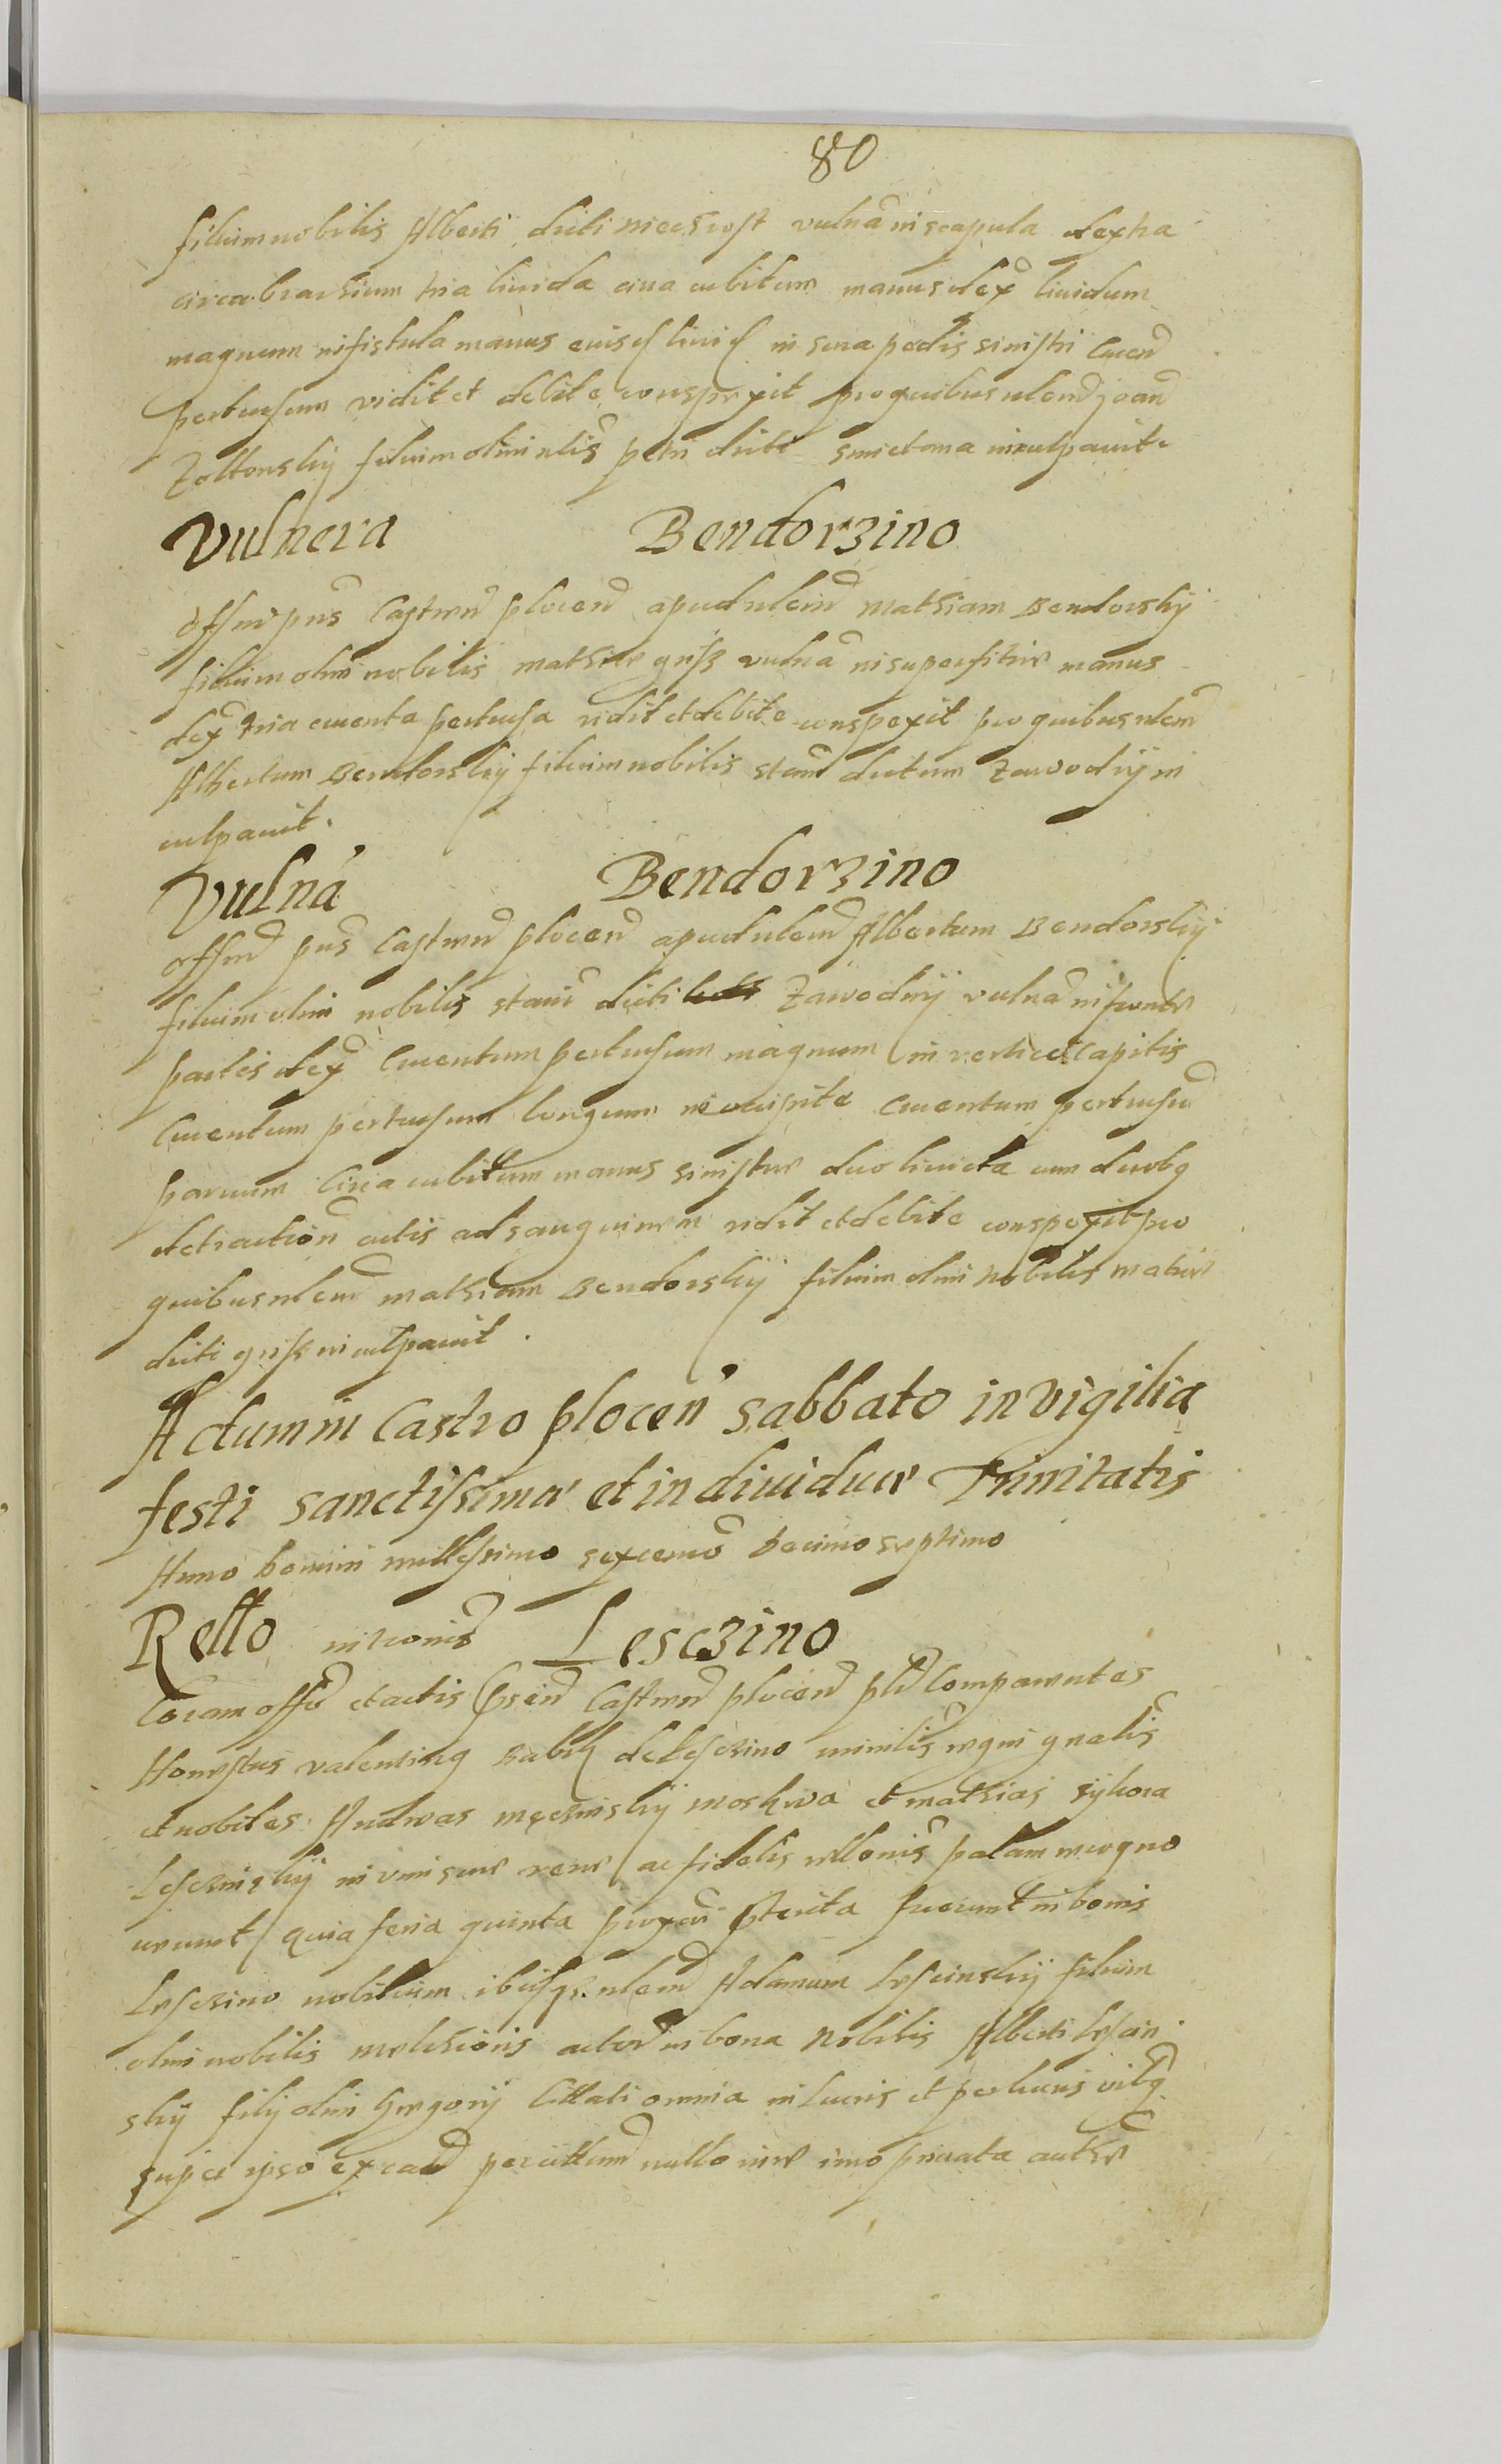 80
filium nobilis Alberti dicti vulna in scapula dextra
circa brachium tria livida circa cubitum manus dex lividum
magnum in fistula manus eiusd livid in sura pedis sinistri cruen
pertusum vidit et debite conspexit pro quibus nlem Joan
Zoltowskij filium olim nlis petri dicti Smietana inculpavit
Vulnera Bendorzino
Offm pns Castren plocen apud nlem Mathiam Bendorskij
filium olim nobilis Mathiae vulna in superficie manus
dex tria cruenta pertusa vidit et debite conspexit pro quibus nlem
Albertum Bendorskij filium nobilis stani dictum Zawodnij in
culpavit.
Vulna Bendorzino
Offm pns Castren plocen apud nlem Albertum Bendorskij
filium olim nobilis stani dicti Zawodnij vulna in fronte
partis dex Cruentum pertusum magnum in vertice Capitis
Cruentum pertusum longum in occipite Cruentum pertusum
parvum Circa cubitum manus sinistrae duo livida cum duobg
detraction cutis ad sanguinem vidit et debite conspexit pro
quibus nlem Mathiam Bendorskij filium olim nobilis Mathiae
dicti inculpavit.
Actum in Castro plocen sabbato in vigilia
festi sanctissimae et individuae Trinitatis
Anno Domini millesimo sexcentmo decimo septimo
Rello Lesczino
Coram offo et actis Castren plocen Comparentes
Honestus valenting de Lesczino ministlis regni gnalis
et nobiles Andreas et Mathias Sykora
in vim suae verae ac fidelis rellonis palam recogno
verunt quia feria quinta proxe pterita fuerunt in bonis
Lesczino nobilium ibiqz nlem Adamum Lescinskij filium
olim nobilis Melchioris in bona Nobilis Alberti Lescin
skij filij olim Gregorij Citlati omnia in lucris et perlucris
super ipso percittum nullo iure imo privata authe